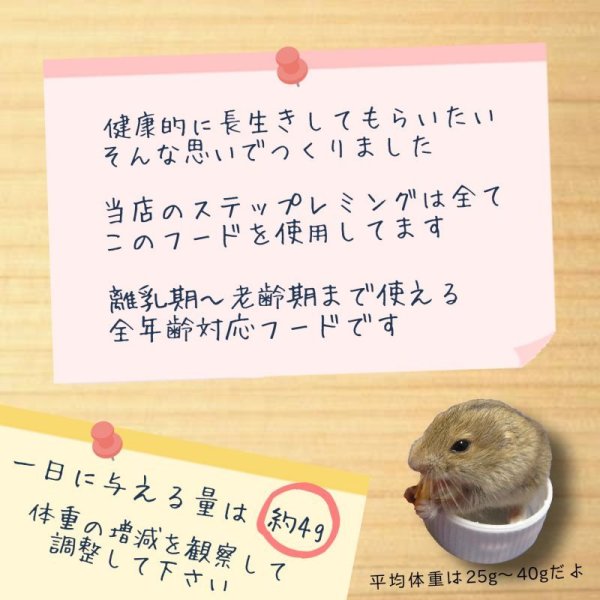 健康的に長生きしてもらいたい
そんな思いでつくりました
当店のステップレミングは全て
このフードを使用してます
離乳期～老齢期まで使える
全年齢対応フードです
一日に与える量は 約4g
体重の増減を観察して
調整して下さい
平均体重は25g～40gだよ